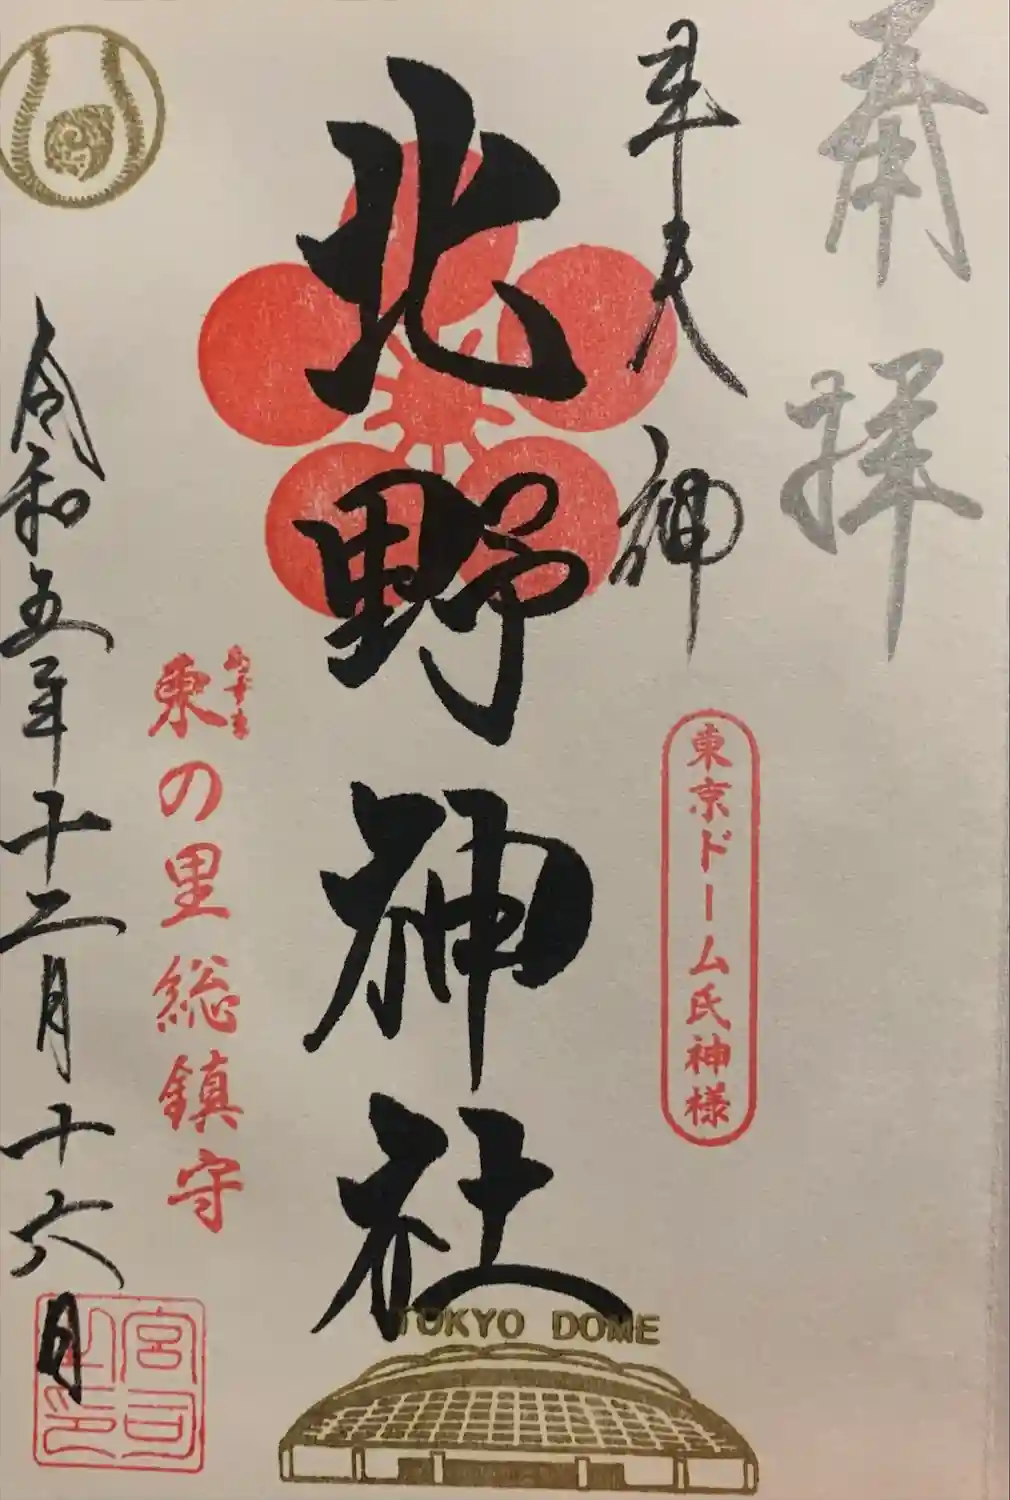 奉拝
牛天神
東京ドーム氏神様
北野神社
あずま
東の里総鎮守
令和五年十二月十六日
宮司之印
TOKYO DOME